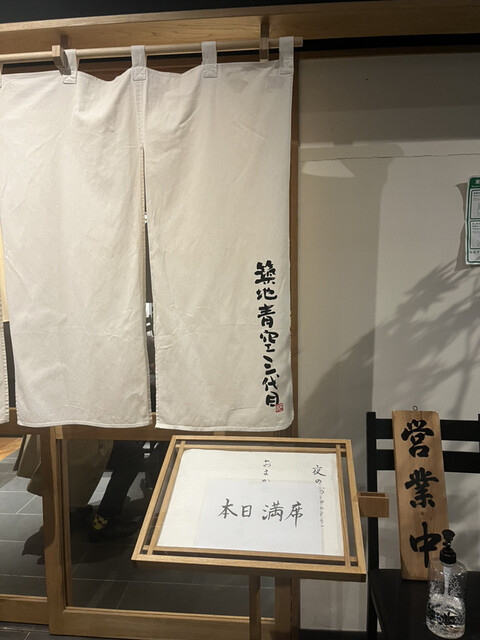 築地青空三代目
夜の
おまか
本日満席
営業中